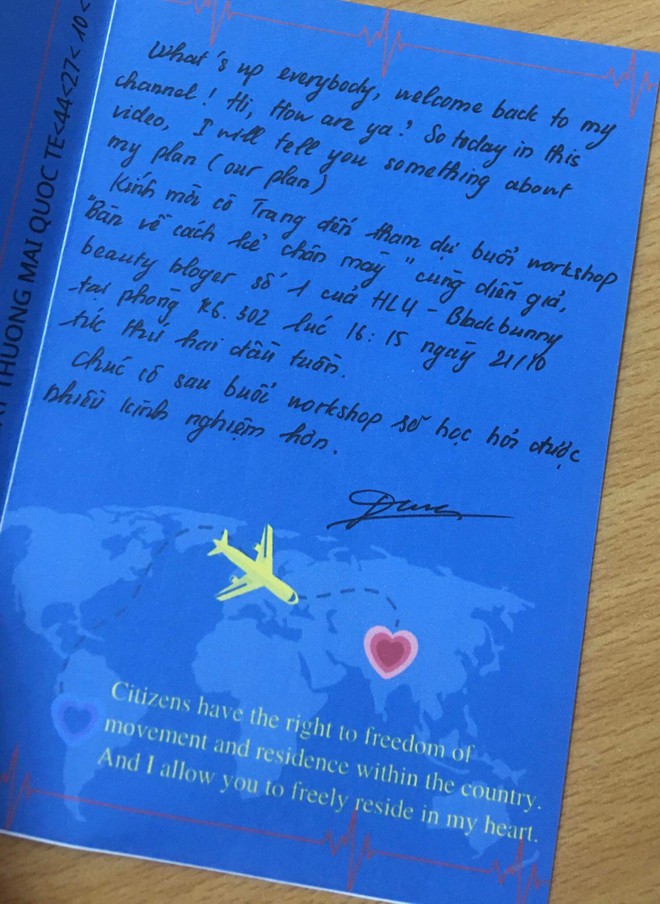 What's up everybody, welcome back to my
channel! Hi, How are ya? So today in this
video, I will tell you something about
my plan (our plan)
Kính mời cô Trang đến tham dự buổi workshop
"Bàn về cách kẻ chân mày" cùng diễn giả,
beauty bloger số 1 của HLU - Blackbunny
tại phòng K6.302 lúc 16:15 ngày 21/10
tức thứ hai đầu tuần.
Chúc cô sau buổi workshop sẽ học hỏi được
nhiều kinh nghiệm hơn.
Citizens have the right to freedom of
movement and residence within the country.
And I allow you to freely reside in my heart.
THUONG MAI QUOC TE<44<27< 10<